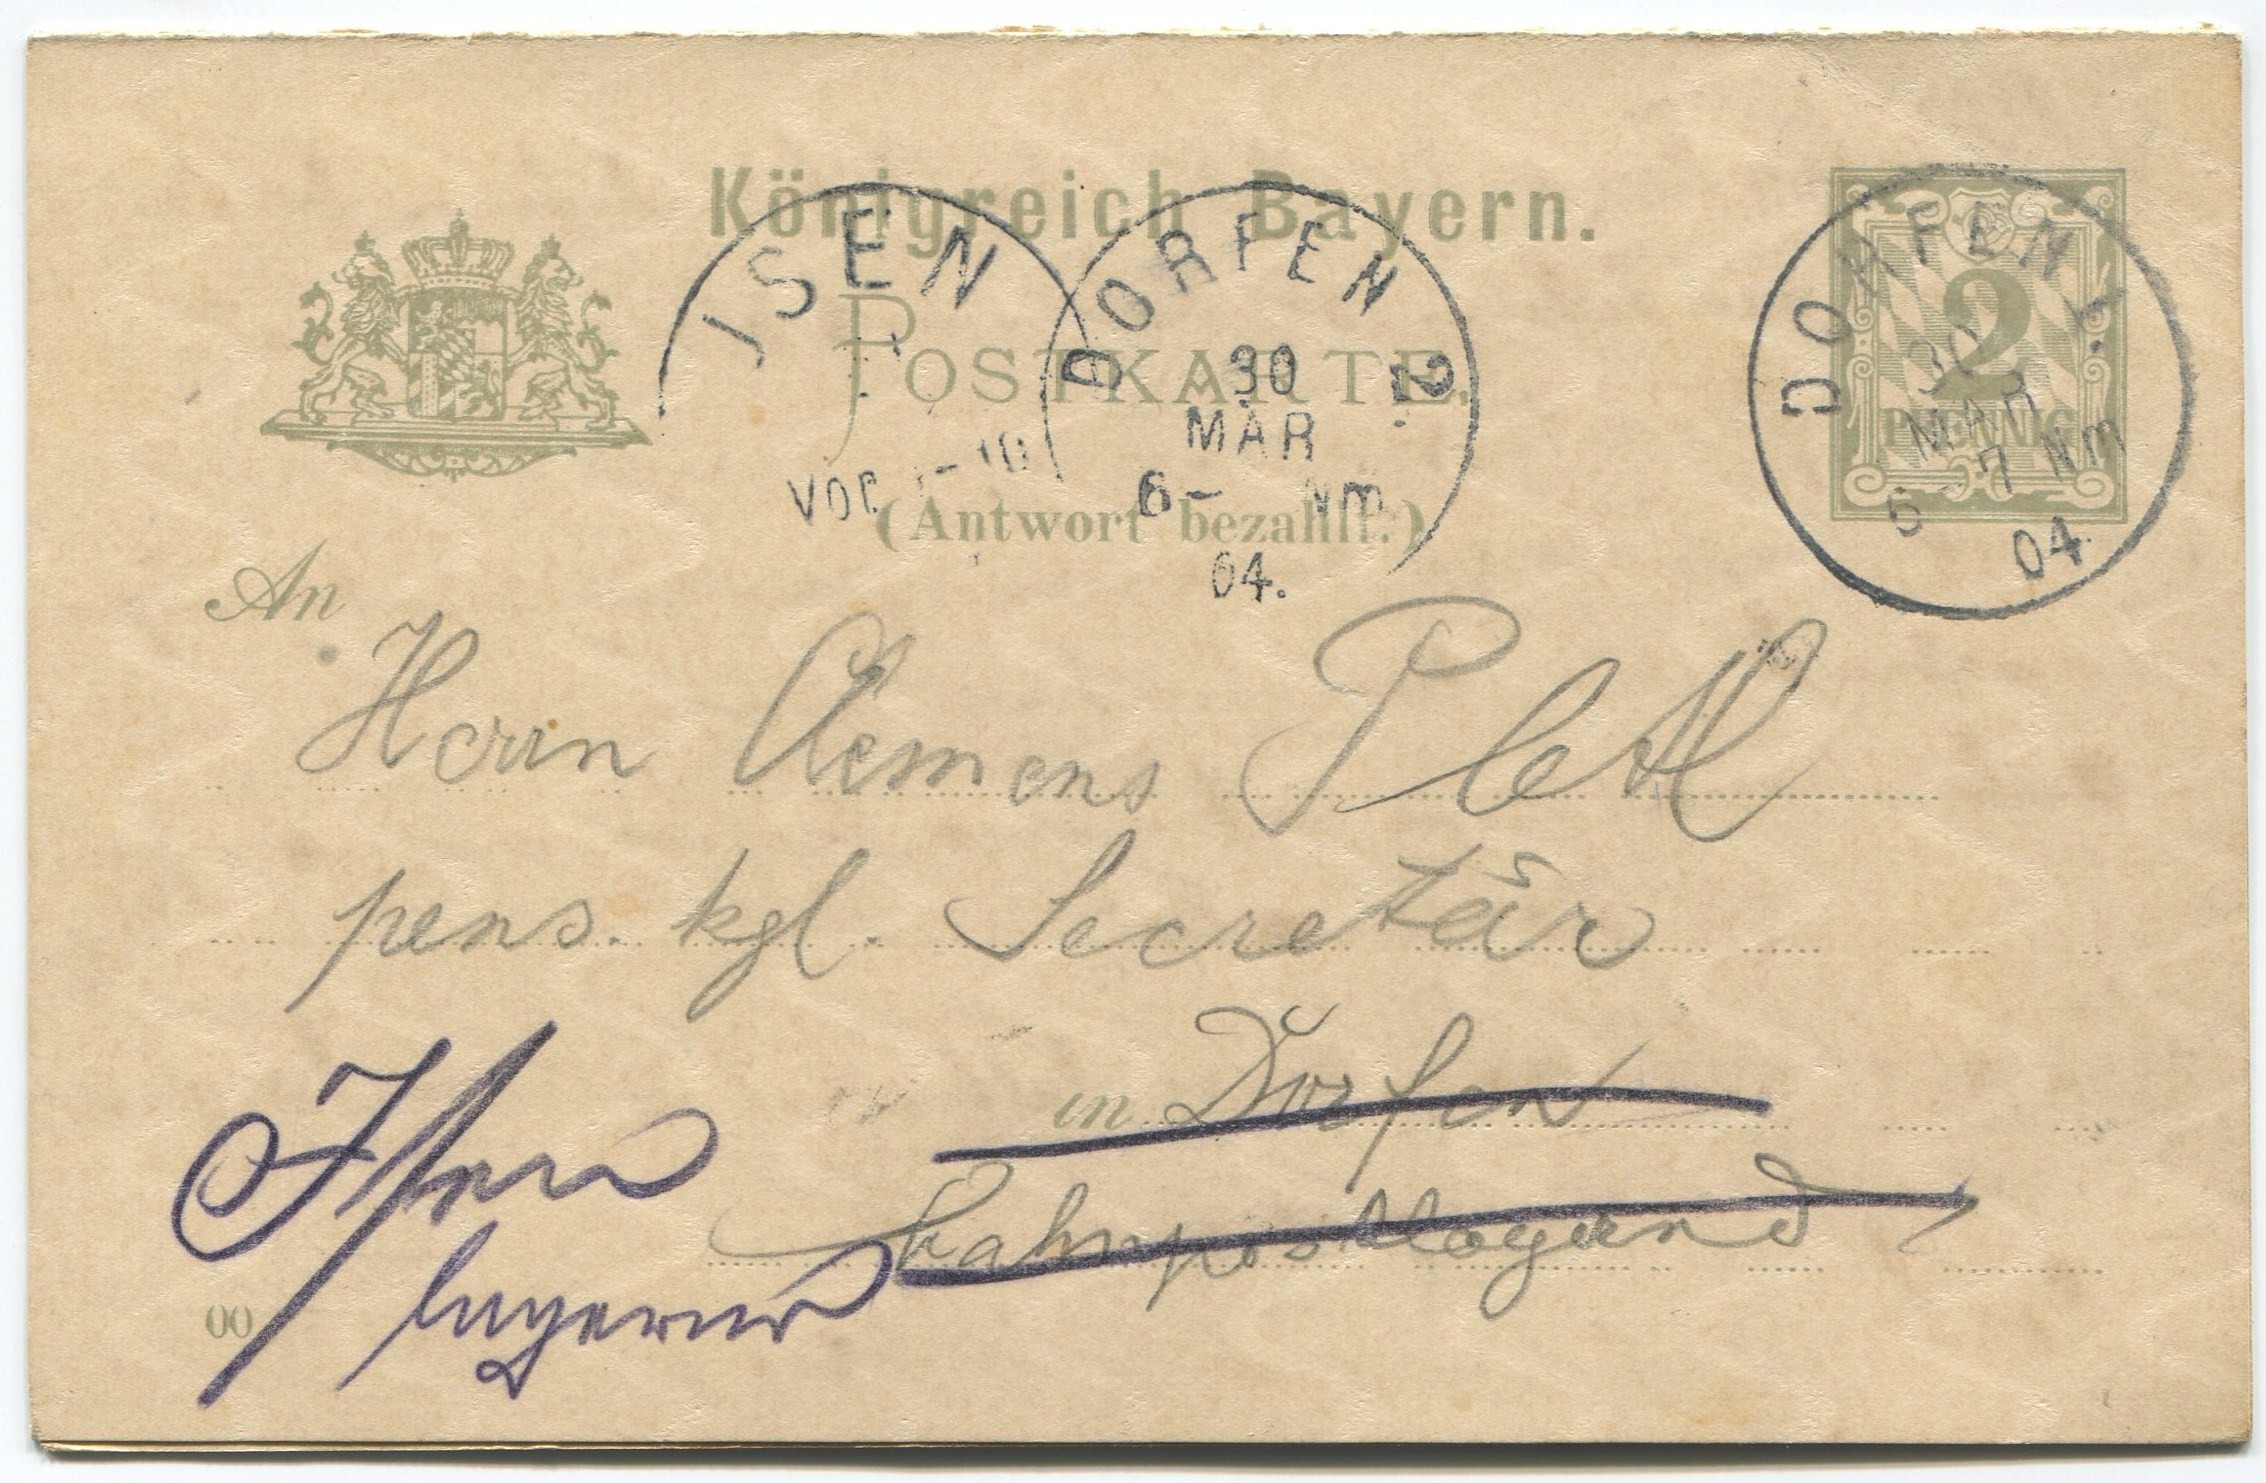 Königreich Bayern.
POSTKARTE.
(Antwort bezahlt.)
ISEN
VOR -10
DORFEN 2.
30
MAR
6- Nm
04.
DORFEN 1.
30
MAR
6-7 Nm
04
2
PFENNIG
An
Herrn Clemens Pletl
pens. kgl. Secretär
in Dorfen
bahnpostlagernd
Isen
lagernd
00